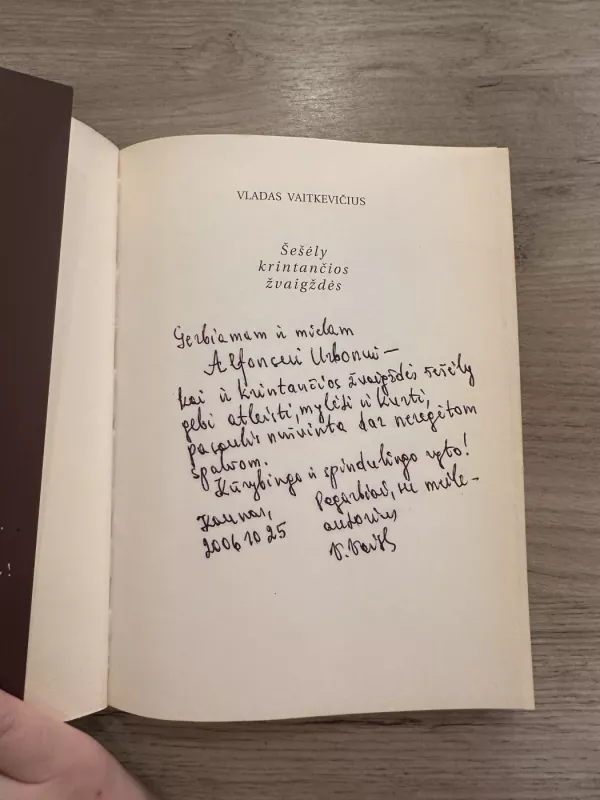 VLADAS VAITKEVIČIUS
Šešėly
krintančios
žvaigždės
Gerbiamam ir mielam
Alfonsui Urbonui —
kai ir krintančios žvaigždės šešėly
gebi atleisti, mylėti ir kurti,
pasaulis nušvinta dar neregėtom
spalvom.
Kūrybingo ir spindulingo ryto!
Kaunas, Pagarbiai, su meile –
2006 10 25 autorius
!